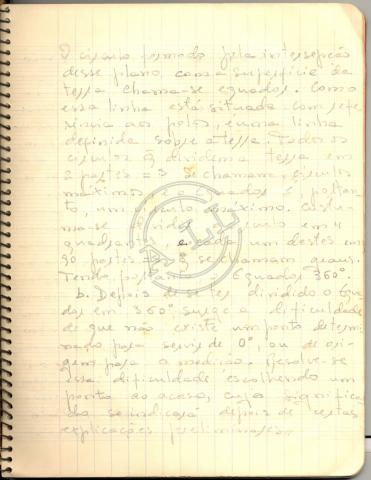 O circulo formado pela intersepção
desse plano com a superficie da
terra chama-se equador. Como
essa linha está situada com refe
rencia aos polos, é uma linha
definida sobre a terra. Todos os
circulos q dividem a terra em
2 partes = s se chamam circulos
maximos. o equador é, portan
to, um circulo máximo. Costu
ma-se dividir o circulo em 4
quadrantes, e cada um destes em
90 partes = s q se chamam graus.
Tendo portanto o Equador 360°.
b. Depois de se ter dividido o Equa
dor em 360° surge a dificuldade
de que não existe um ponto determi
nado para servir de 0°, ou de ori-
gem para a medição. Resolve-se
essa dificuldade escolhendo um
ponto ao acaso, cujo significa
do se indicará depois de certas
explicações preliminares.